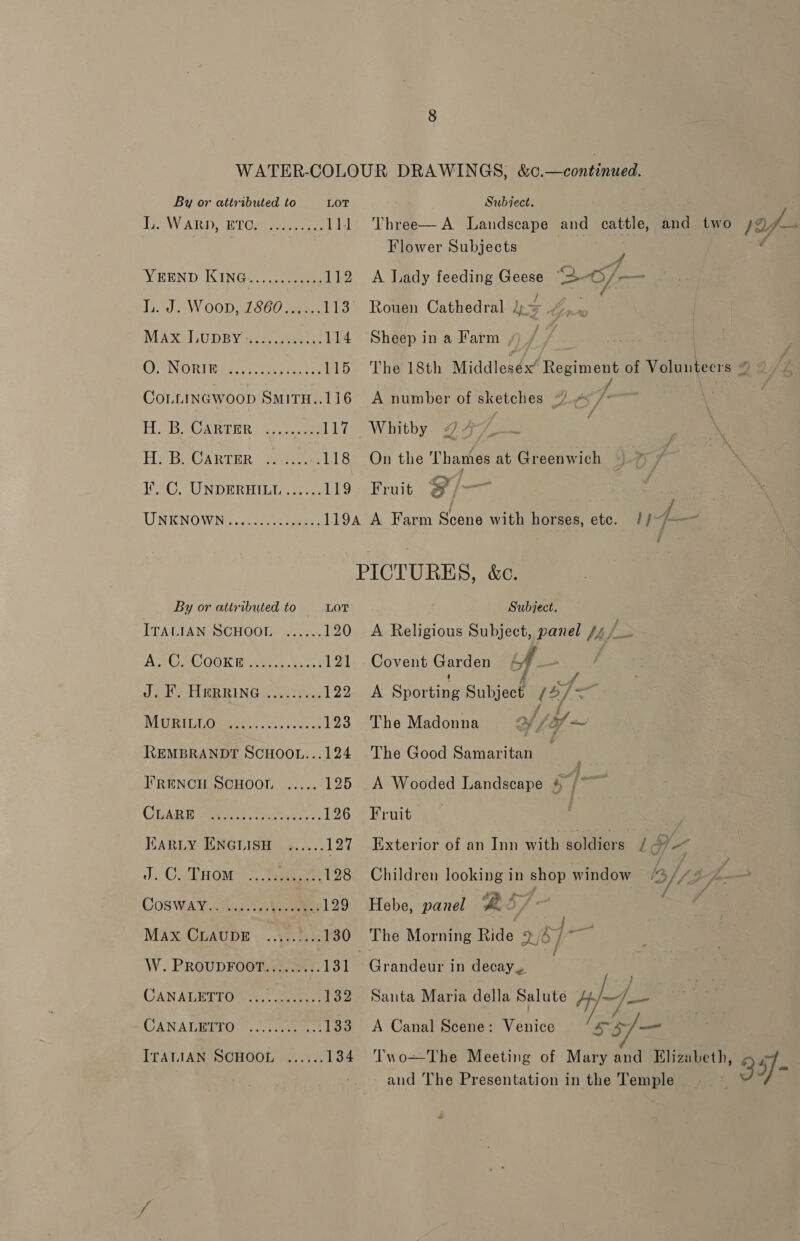 8
WATER-COLOUR DRAWINGS, &c.—continued.
By or attributed to LOT Subject.
L. WARD, ETC. ......... 111 Three—A Landscape and cattle, and two
Flower Subjects
YEEND KING............ 112 A Lady feeding Geese
L. J. WOOD, 1860...... 113 Rouen Cathedral
MAX LUDBY ............ 114 Sheep in a Farm
O. NORIE ............... 115 The 18th Middlesex Regiment of Volunteers
COLLINGWOOD SMITH.. 116 A number of sketches
H. B. CARTER ......... 117 Whitby
H. B. CARTER ......... 118 On the Thames at Greenwich
F. C. UNDERHILL ...... 119 Fruit
UNKNOWN ............... 119A A Farm Scene with horses, etc.
PICTURES, &c.
By or attributed to LOT Subject.
ITALIAN SCHOOL ...... 120 A Religious Subject, panel
A. C. COOKE ............ 121 Covent Garden
J. F. HERRING ......... 122 A Sporting Subject
MURILLO ............... 123 The Madonna
REMBRANDT SCHOOL... 124 The Good Samaritan
FRENCH SCHOOL ..... 125 A Wooded Landscape
CLARE .................. 126 Fruit
EARLY ENGLISH ...... 127 Exterior of an Inn with soldiers
J. C. THOM ............ 128 Children looking in shop window
COSWAY.. ............... 129 Hebe, panel 25/-
MAX CLAUDE ......... 130 The Morning Ride
W. PROUDFOOT......... 131 Grandeur in decay
CANALETTO ............ 132 Santa Maria della Salute
CANALETTO ............ 133 A Canal Scene: Venice 55/-
ITALIAN SCHOOL ...... 134 Two—The Meeting of Mary and Elizabeth, 35/-
and The Presentation in the Temple